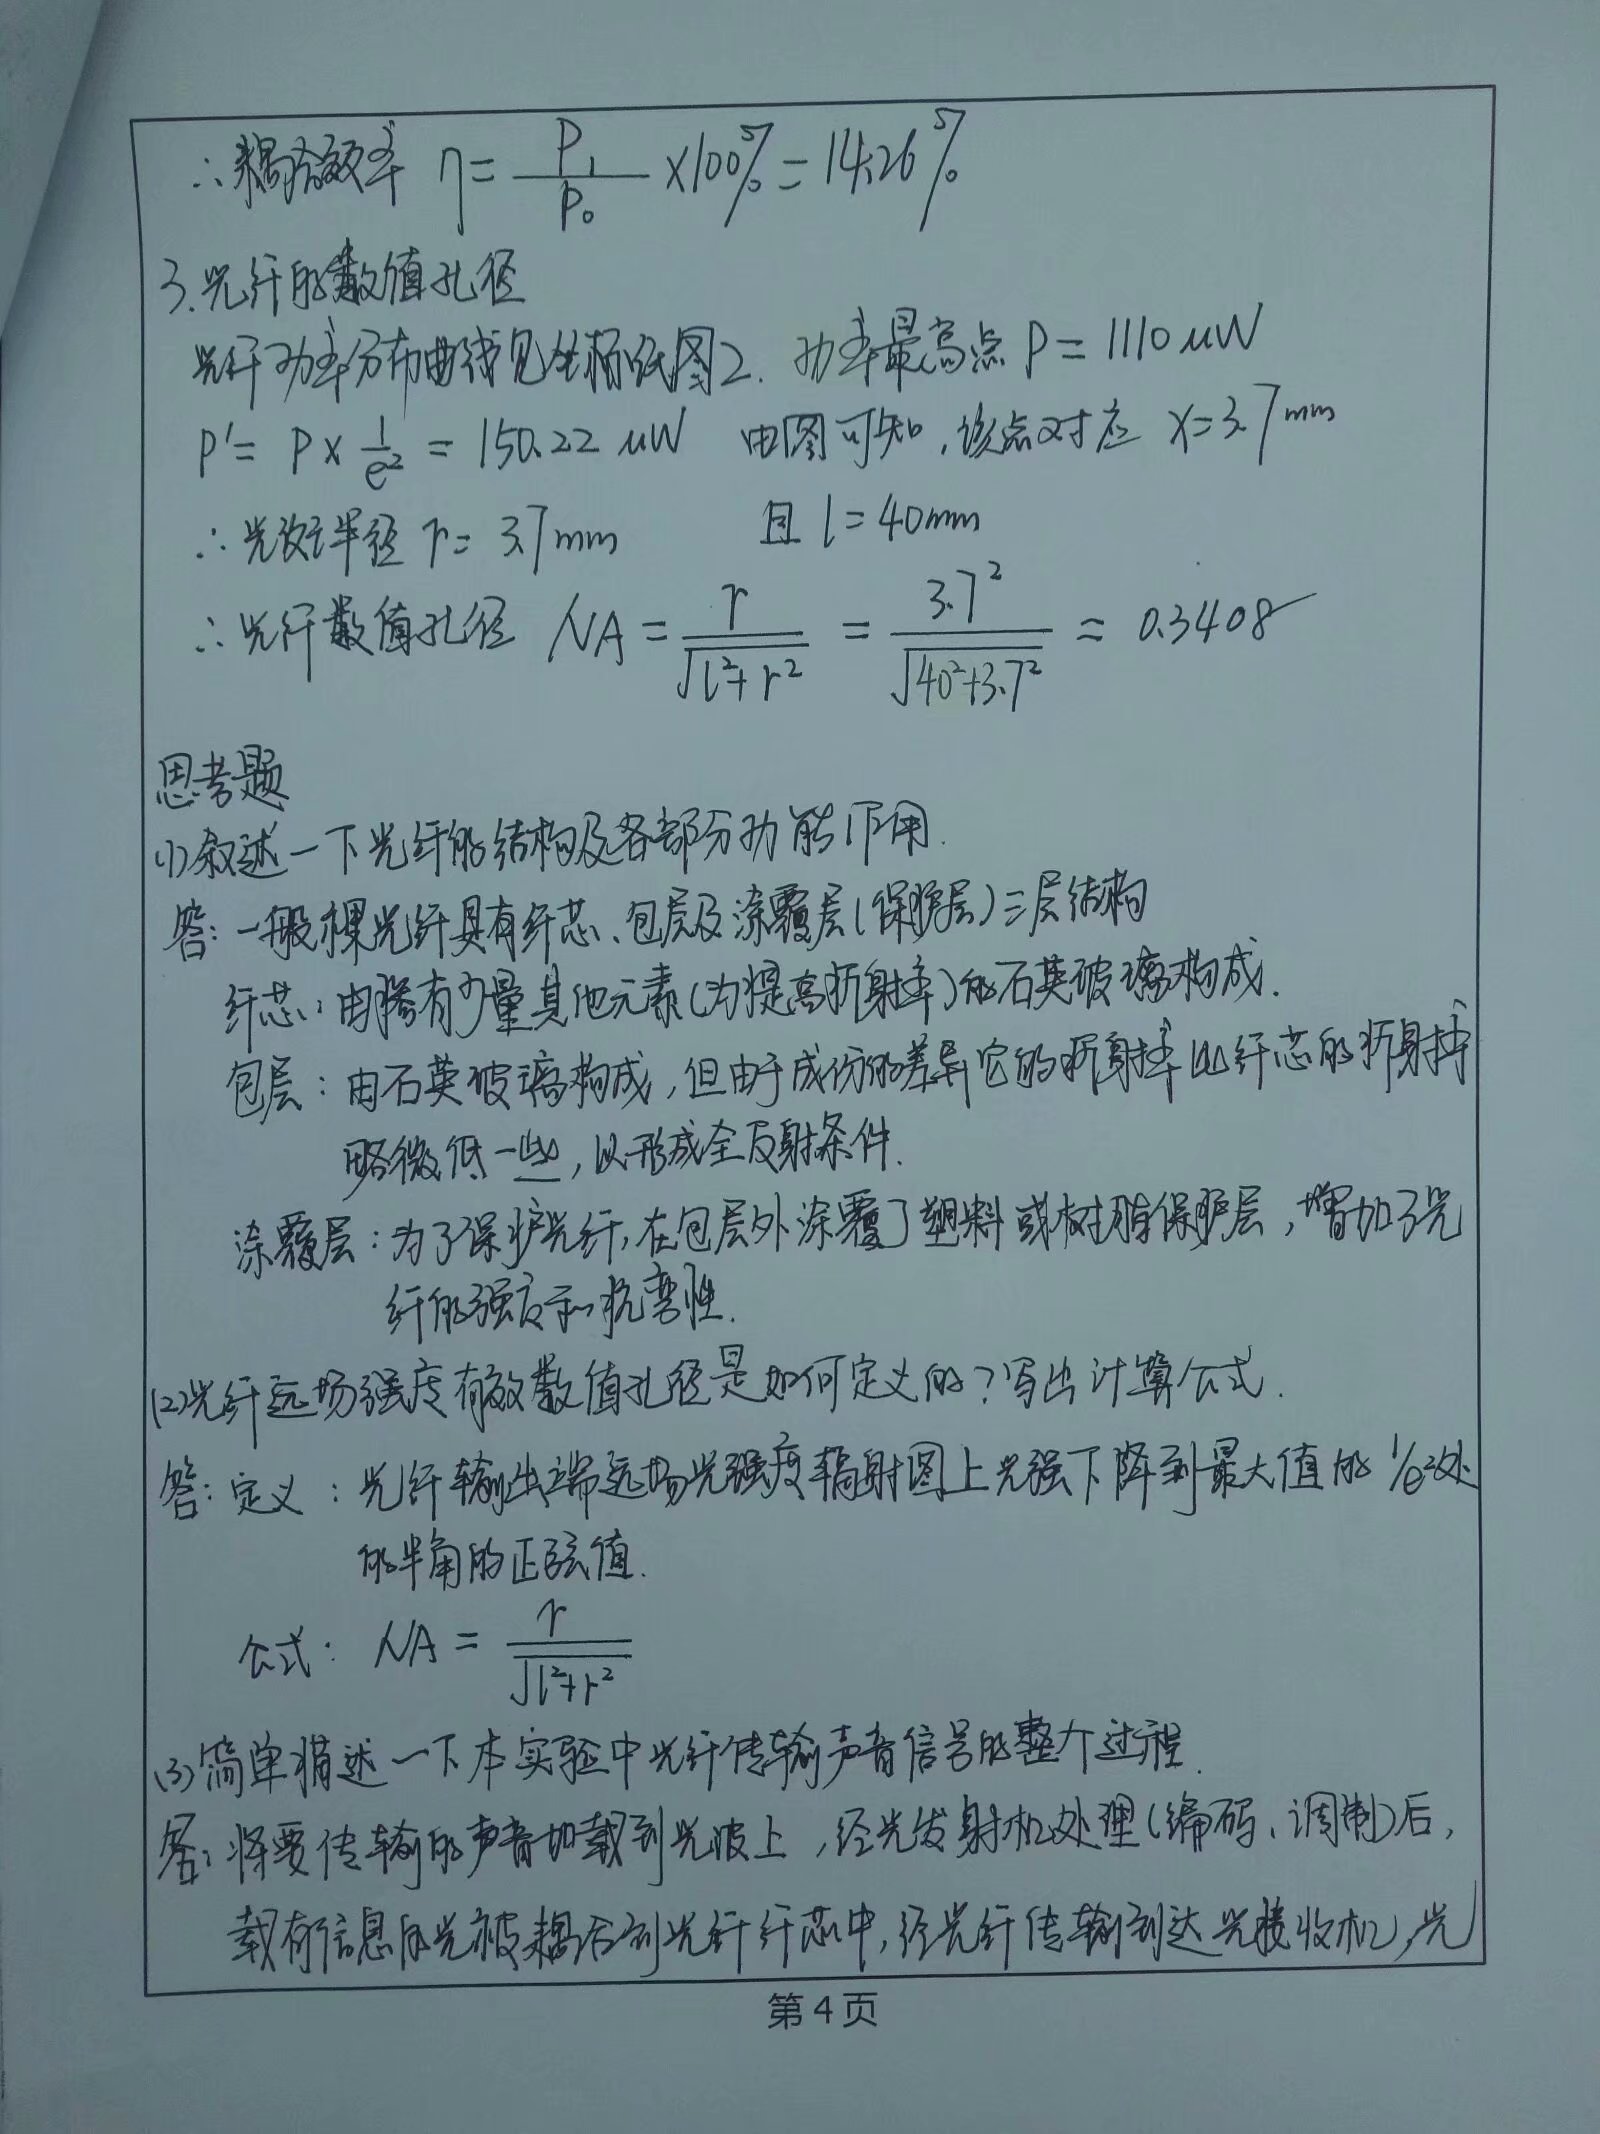 ∴耦合效率 η = P₁/P₀ ×100% = 14.26%
3.光纤的数值孔径
光纤功率分布曲线见坐标纸图2. 功率最高点 P = 1110 μW
P′ = P × 1/e² = 150.22 μW 由图可知,该点对应 x=3.7mm
∴光斑半径 r= 3.7mm 且 l=40mm
∴光纤数值孔径 NA = r/√(l²+r²) = 3.7²/√(40²+3.7²) = 0.3408
思考题
(1)叙述一下光纤的结构及各部分功能作用.
答:一般裸光纤具有纤芯、包层及涂覆层(保护层)三层结构
纤芯:由掺有少量其他元素(为提高折射率)的石英玻璃构成.
包层:由石英玻璃构成,但由于成份的差异它的折射率比纤芯的折射率
略微低一些,以形成全反射条件.
涂覆层:为了保护光纤,在包层外涂覆了塑料或树脂保护层,增加了光
纤的强度和抗弯性.
(2)光纤远场强度有效数值孔径是如何定义的?写出计算公式.
答:定义:光纤输出端远场光强度辐射图上光强下降到最大值的1/e²处
的半角的正弦值.
公式: NA = r/√(l²+r²)
(3)简单描述一下本实验中光纤传输声音信号的整个过程.
答:将要传输的声音加载到光波上,经光发射机处理(编码、调制)后,
载有信息的光被耦合到光纤纤芯中,经光纤传输到达光接收机,光
第4页